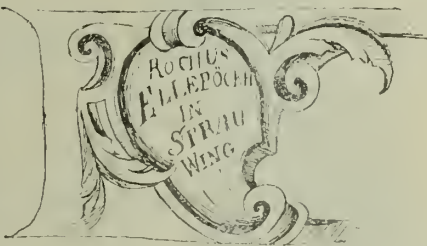 ROCHUS
ELLEPÖCKH
IN
STRAU
WING